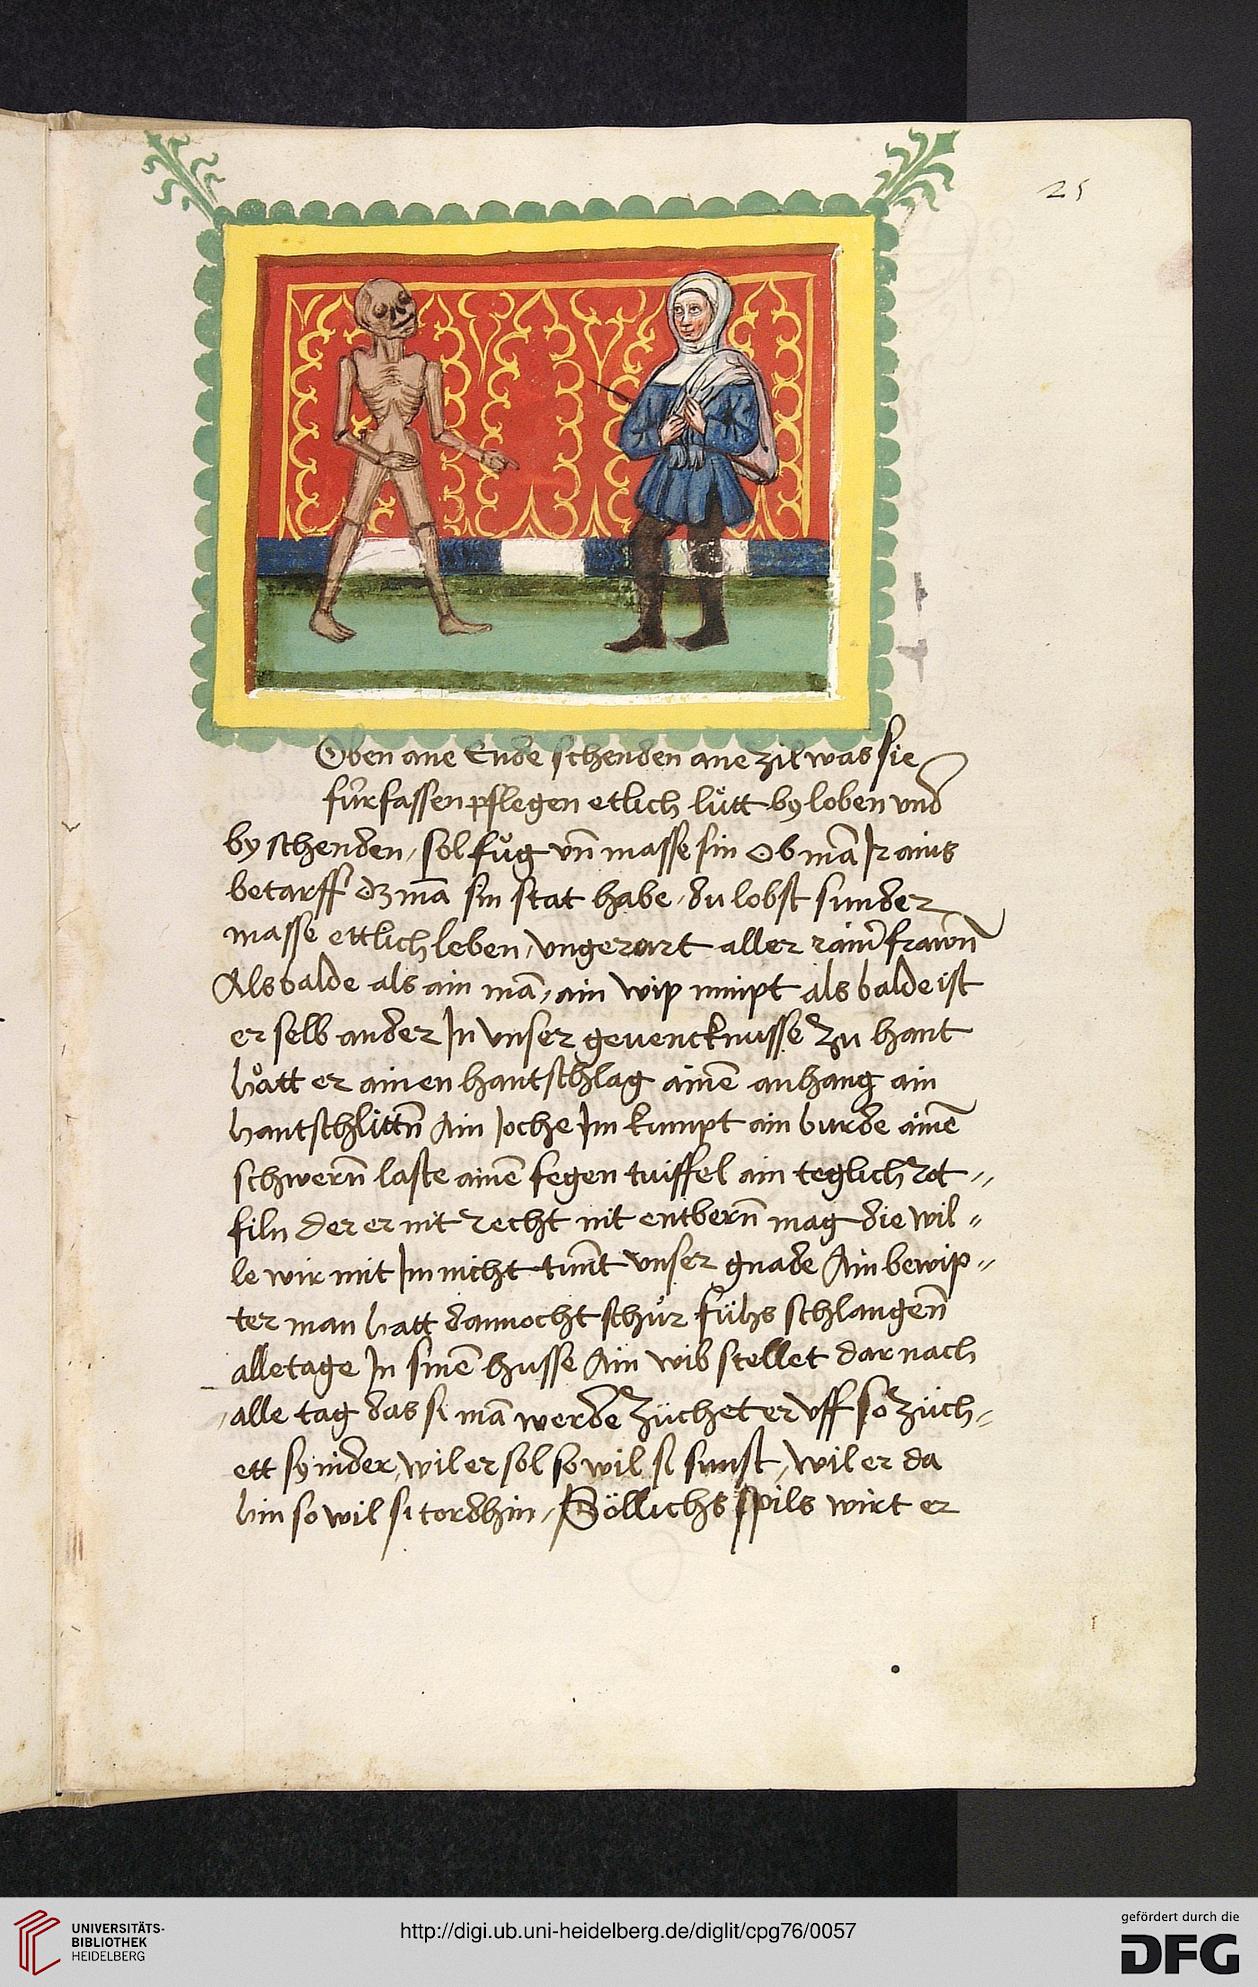 25
Oben ane Ende schenden ane zil was sie
fürfassen pflegen etlich lütt by loben und
by schenden, sol füg vn̄ masse sin ob mā Ir ains
betarff dz mā sin stat habe, du lobst sunder
masse ettlich leben, ungerurt aller rain̄ frawn̄
Als balde als ain mā, ain wip nimpt als balde ist
er selb ander In unser gevencknusse zu hant
hått er ainen hantschlag ainē anhang ain
hantschlittn̄ Ain Joche Im kumpt ain burde ainē
schwern̄ laste ainē fegen tuiffel ain teglich rot-
filn der er nit recht nit entbern̄ mag die wil-
le wir mit Im nicht tun̄t unser gnade Ain bewip-
ter man hatt dannocht schur fühs schlangen̄
alle tage In sinē husse Ain wib stellet dar nach
alle tag das si mā werde Züchet er uff so züch-
ett sy nider, wil er sol so wil si sunst, wil er da
hin so wil si tordhin, Söllichs spils wirt er
UNIVERSITÄTS-
BIBLIOTHEK
HEIDELBERG
http://digi.ub.uni-heidelberg.de/diglit/cpg76/0057
gefördert durch die
DFG